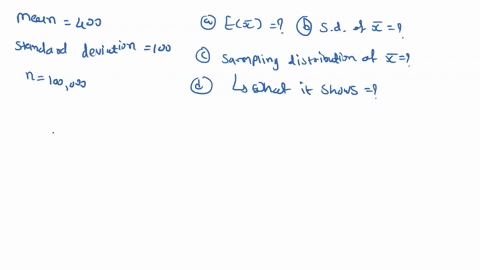 mean = 400
standard deviation = 100
n = 100,000
(a) E(x̄) = ? (b) S.d. of x̄ = ?
(c) Sampling distribution of x̄ = ?
(d) ↳ what it shows = ?